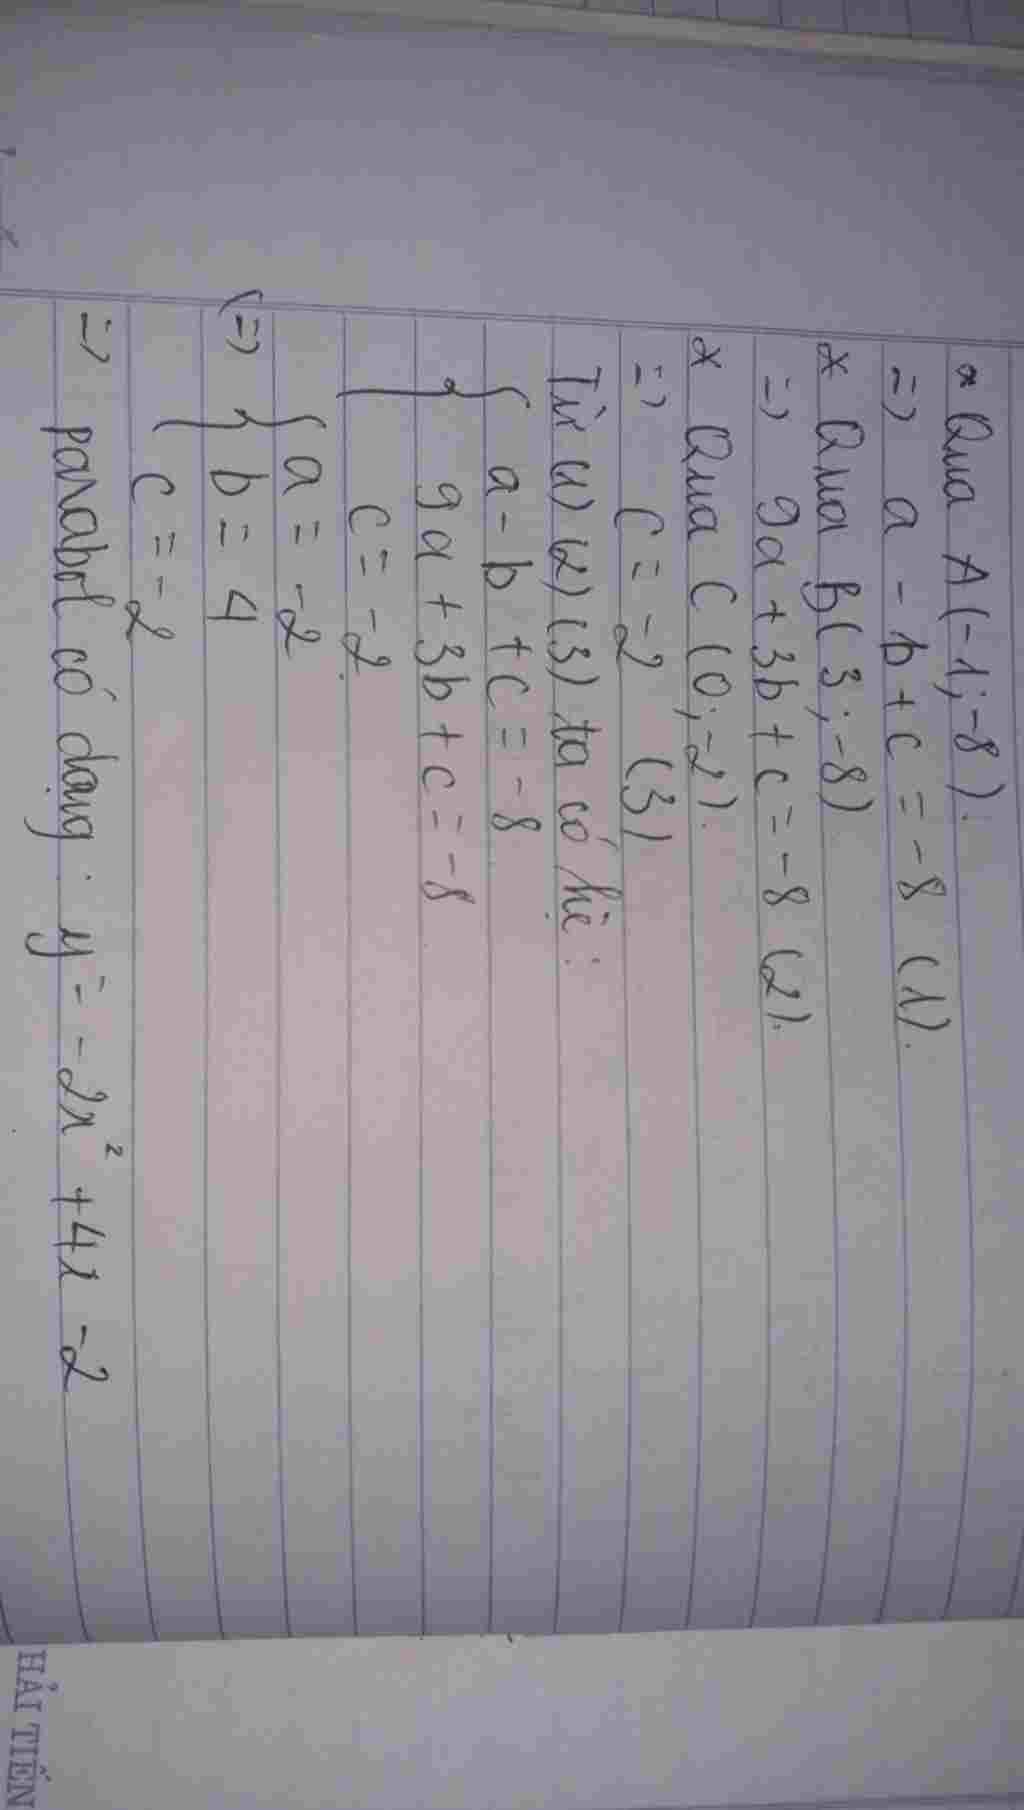 * Qua A(-1;-8).
=> a - b + c = -8 (1).
* Qua B(3;-8)
=> 9a + 3b + c = -8 (2).
* Qua C (0;-2).
=> c = -2 (3)
Từ (1) (2) (3) ta có hệ:
{ a - b + c = -8
9a + 3b + c = -8
c = -2.
(=> { a = -2
b = 4
c = -2
=> parabol có dạng: y = -2x² + 4x - 2
HẢI TIẾN